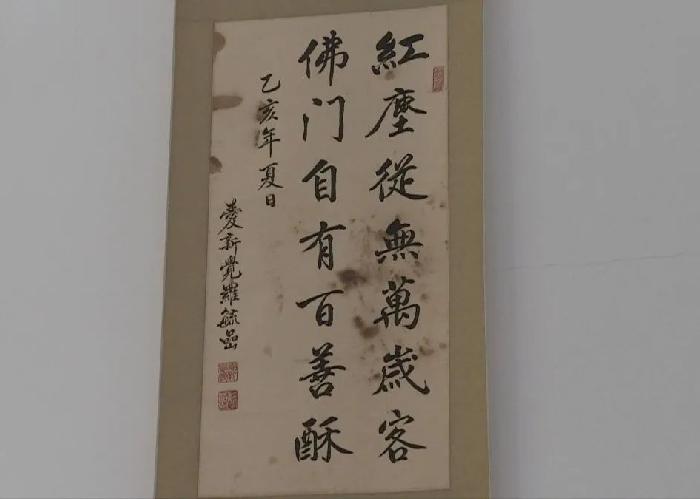 紅塵從無萬歲客
佛门自有百善酥
乙亥年夏日
愛新覺羅毓嵒